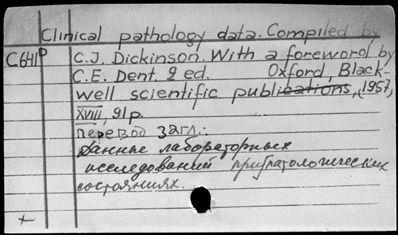 Clinical pathology data. Compiled by
C641D C.J. Dickinson. With a foreword by
C.E. Dent. 2 ed. Oxford, Black-
well scientific publications, (1957),
XVIII, 91p.
перевод загл.:
Данные лабораторных
исследований при патологических
состояниях.
+